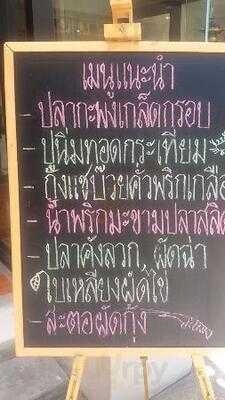 เมนูแนะนำ
- ปลากะพงเกล็ดกรอบ
- ปูนิ่มทอดกระเทียม
กุ้งแช่บ๊วยคั่วพริกเกลือ
- น้ำพริกมะขามปลาสลิด
- ปลาคังลวก, ผัดฉ่า
ใบเหลียงผัดไข่
- สะตอผัดกุ้ง